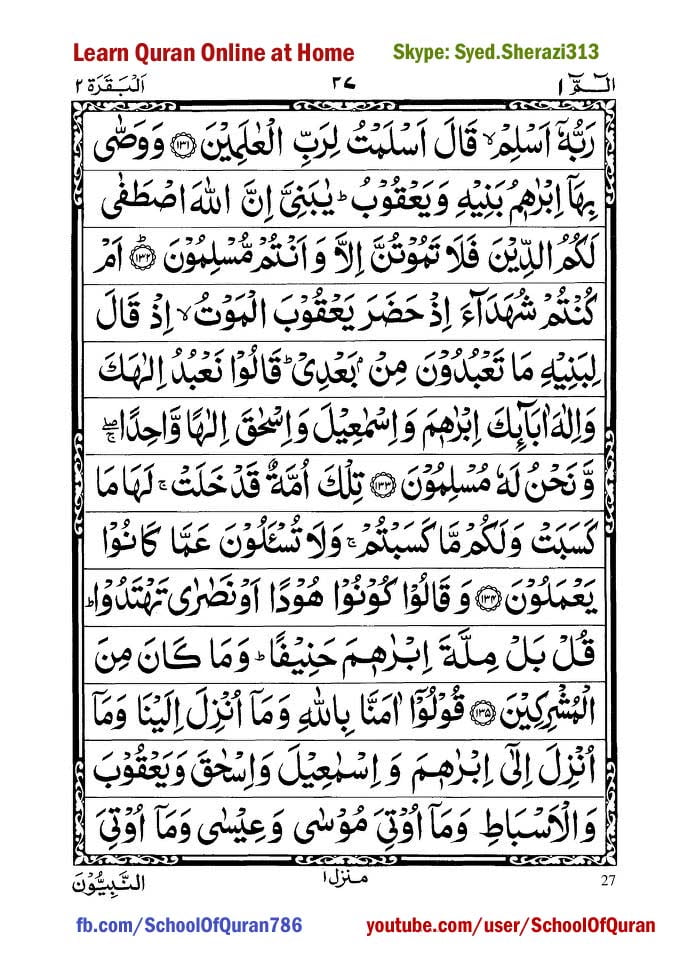 Learn Quran Online at Home Skype: Syed.Sherazi313
الٓـمّٓ ١ ٢٧ اَلْبَقَرَة ٢
رَبُّهٗۤ اَسْلِمْ ۙ قَالَ اَسْلَمْتُ لِرَبِّ الْعٰلَمِیْنَ ﴿۱۳۱﴾ وَ وَصّٰی
بِهَاۤ اِبْرٰهٖمُ بَنِیْهِ وَ یَعْقُوْبُ ؕ یٰبَنِیَّ اِنَّ اللّٰهَ اصْطَفٰی
لَكُمُ الدِّیْنَ فَلَا تَمُوْتُنَّ اِلَّا وَ اَنْتُمْ مُّسْلِمُوْنَ ﴿۱۳۲﴾ؕ اَمْ
كُنْتُمْ شُهَدَآءَ اِذْ حَضَرَ یَعْقُوْبَ الْمَوْتُ ۙ اِذْ قَالَ
لِبَنِیْهِ مَا تَعْبُدُوْنَ مِنْۢ بَعْدِیْ ؕ قَالُوْا نَعْبُدُ اِلٰهَكَ
وَ اِلٰهَ اٰبَآىِٕكَ اِبْرٰهٖمَ وَ اِسْمٰعِیْلَ وَ اِسْحٰقَ اِلٰهًا وَّاحِدًا ۖۚ
وَّ نَحْنُ لَهٗ مُسْلِمُوْنَ ﴿۱۳۳﴾ تِلْكَ اُمَّةٌ قَدْ خَلَتْ ۚ لَهَا مَا
كَسَبَتْ وَ لَكُمْ مَّا كَسَبْتُمْ ۚ وَ لَا تُسْـَٔلُوْنَ عَمَّا كَانُوْا
یَعْمَلُوْنَ ﴿۱۳۴﴾ وَ قَالُوْا كُوْنُوْا هُوْدًا اَوْ نَصٰرٰی تَهْتَدُوْا ؕ
قُلْ بَلْ مِلَّةَ اِبْرٰهٖمَ حَنِیْفًا ؕ وَ مَا كَانَ مِنَ
الْمُشْرِكِیْنَ ﴿۱۳۵﴾ قُوْلُوْۤا اٰمَنَّا بِاللّٰهِ وَ مَاۤ اُنْزِلَ اِلَیْنَا وَ مَاۤ
اُنْزِلَ اِلٰۤی اِبْرٰهٖمَ وَ اِسْمٰعِیْلَ وَ اِسْحٰقَ وَ یَعْقُوْبَ
وَ الْاَسْبَاطِ وَ مَاۤ اُوْتِیَ مُوْسٰی وَ عِیْسٰی وَ مَاۤ اُوْتِیَ
27 منزل ١ النَّبِیُّوْنَ
fb.com/SchoolOfQuran786 youtube.com/user/SchoolOfQuran